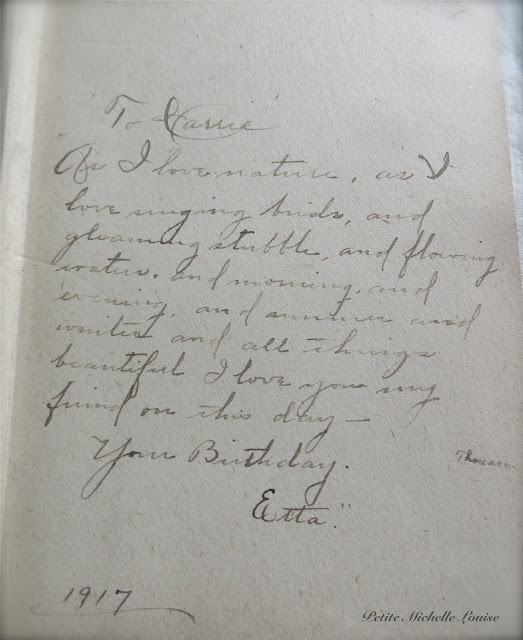 To Carrie
As I love nature, as I
love singing birds, and
gleaming stubble, and flowing
water, and morning, and
evening, and summer and
winter and all things
beautiful I love you my
friend on this day —
Your Birthday.
Thoreau.
Etta."
1917
Petite Michelle Louise